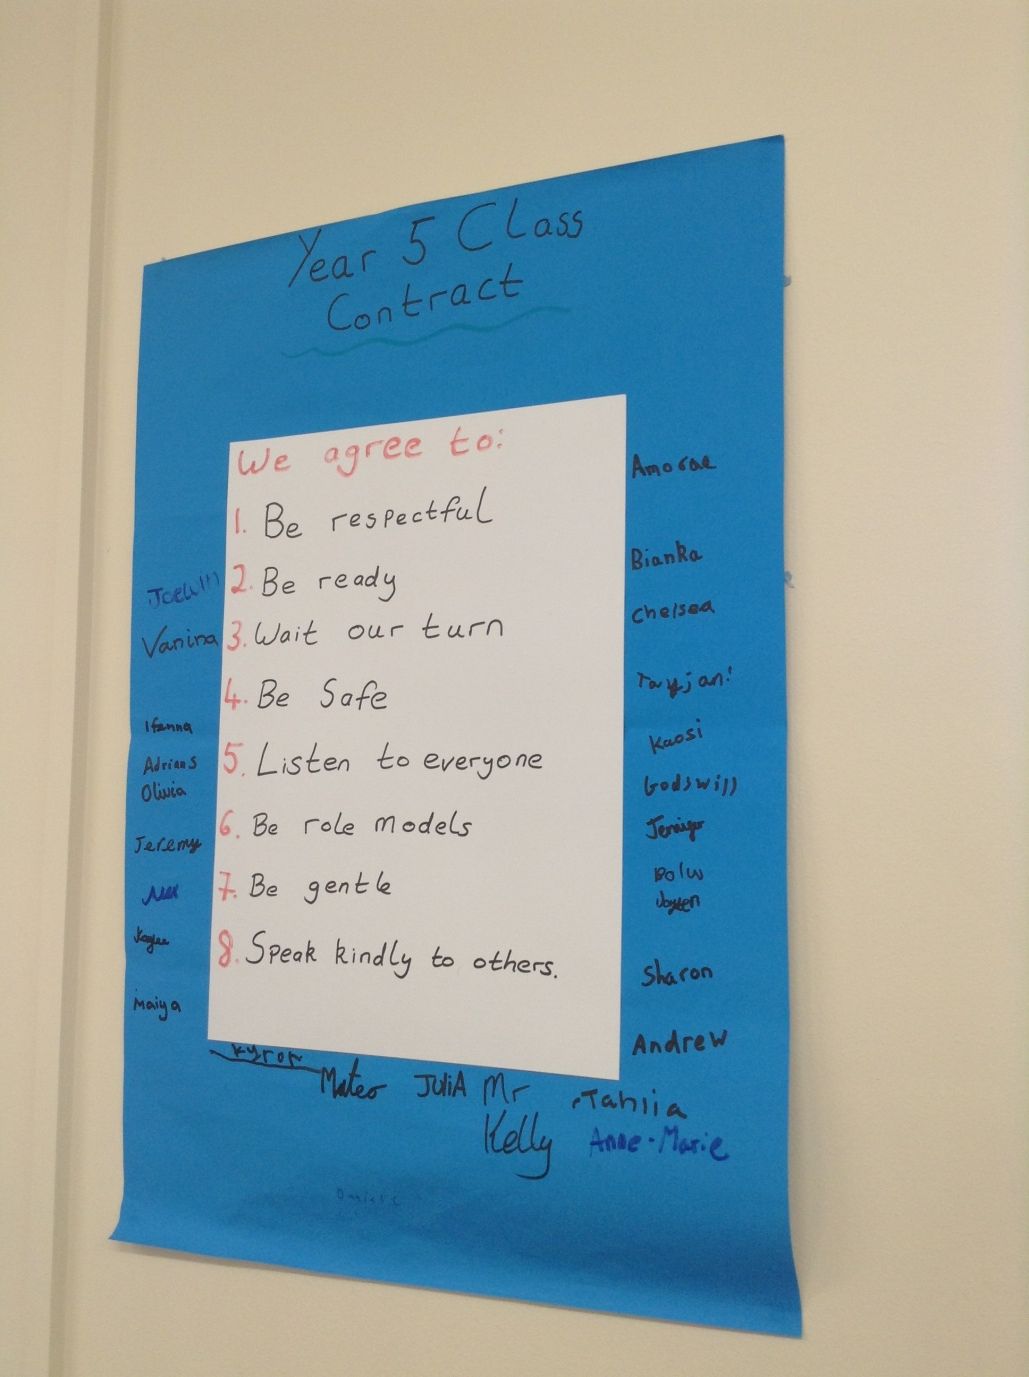 Year 5 Class
Contract
We agree to:
1. Be respectful
2. Be ready
3. Wait our turn
4. Be Safe
5. Listen to everyone
6. Be role models
7. Be gentle
8. Speak kindly to others.
Vanina
Ifanna
Olivia
Jeremy
Maiya
Amorae
Bianka
Chelsea
Kaosi
Godswill
Sharon
Andrew
Kyron
Mateo
JuliA
Mr
Kelly
Tahlia
Anne-Marie